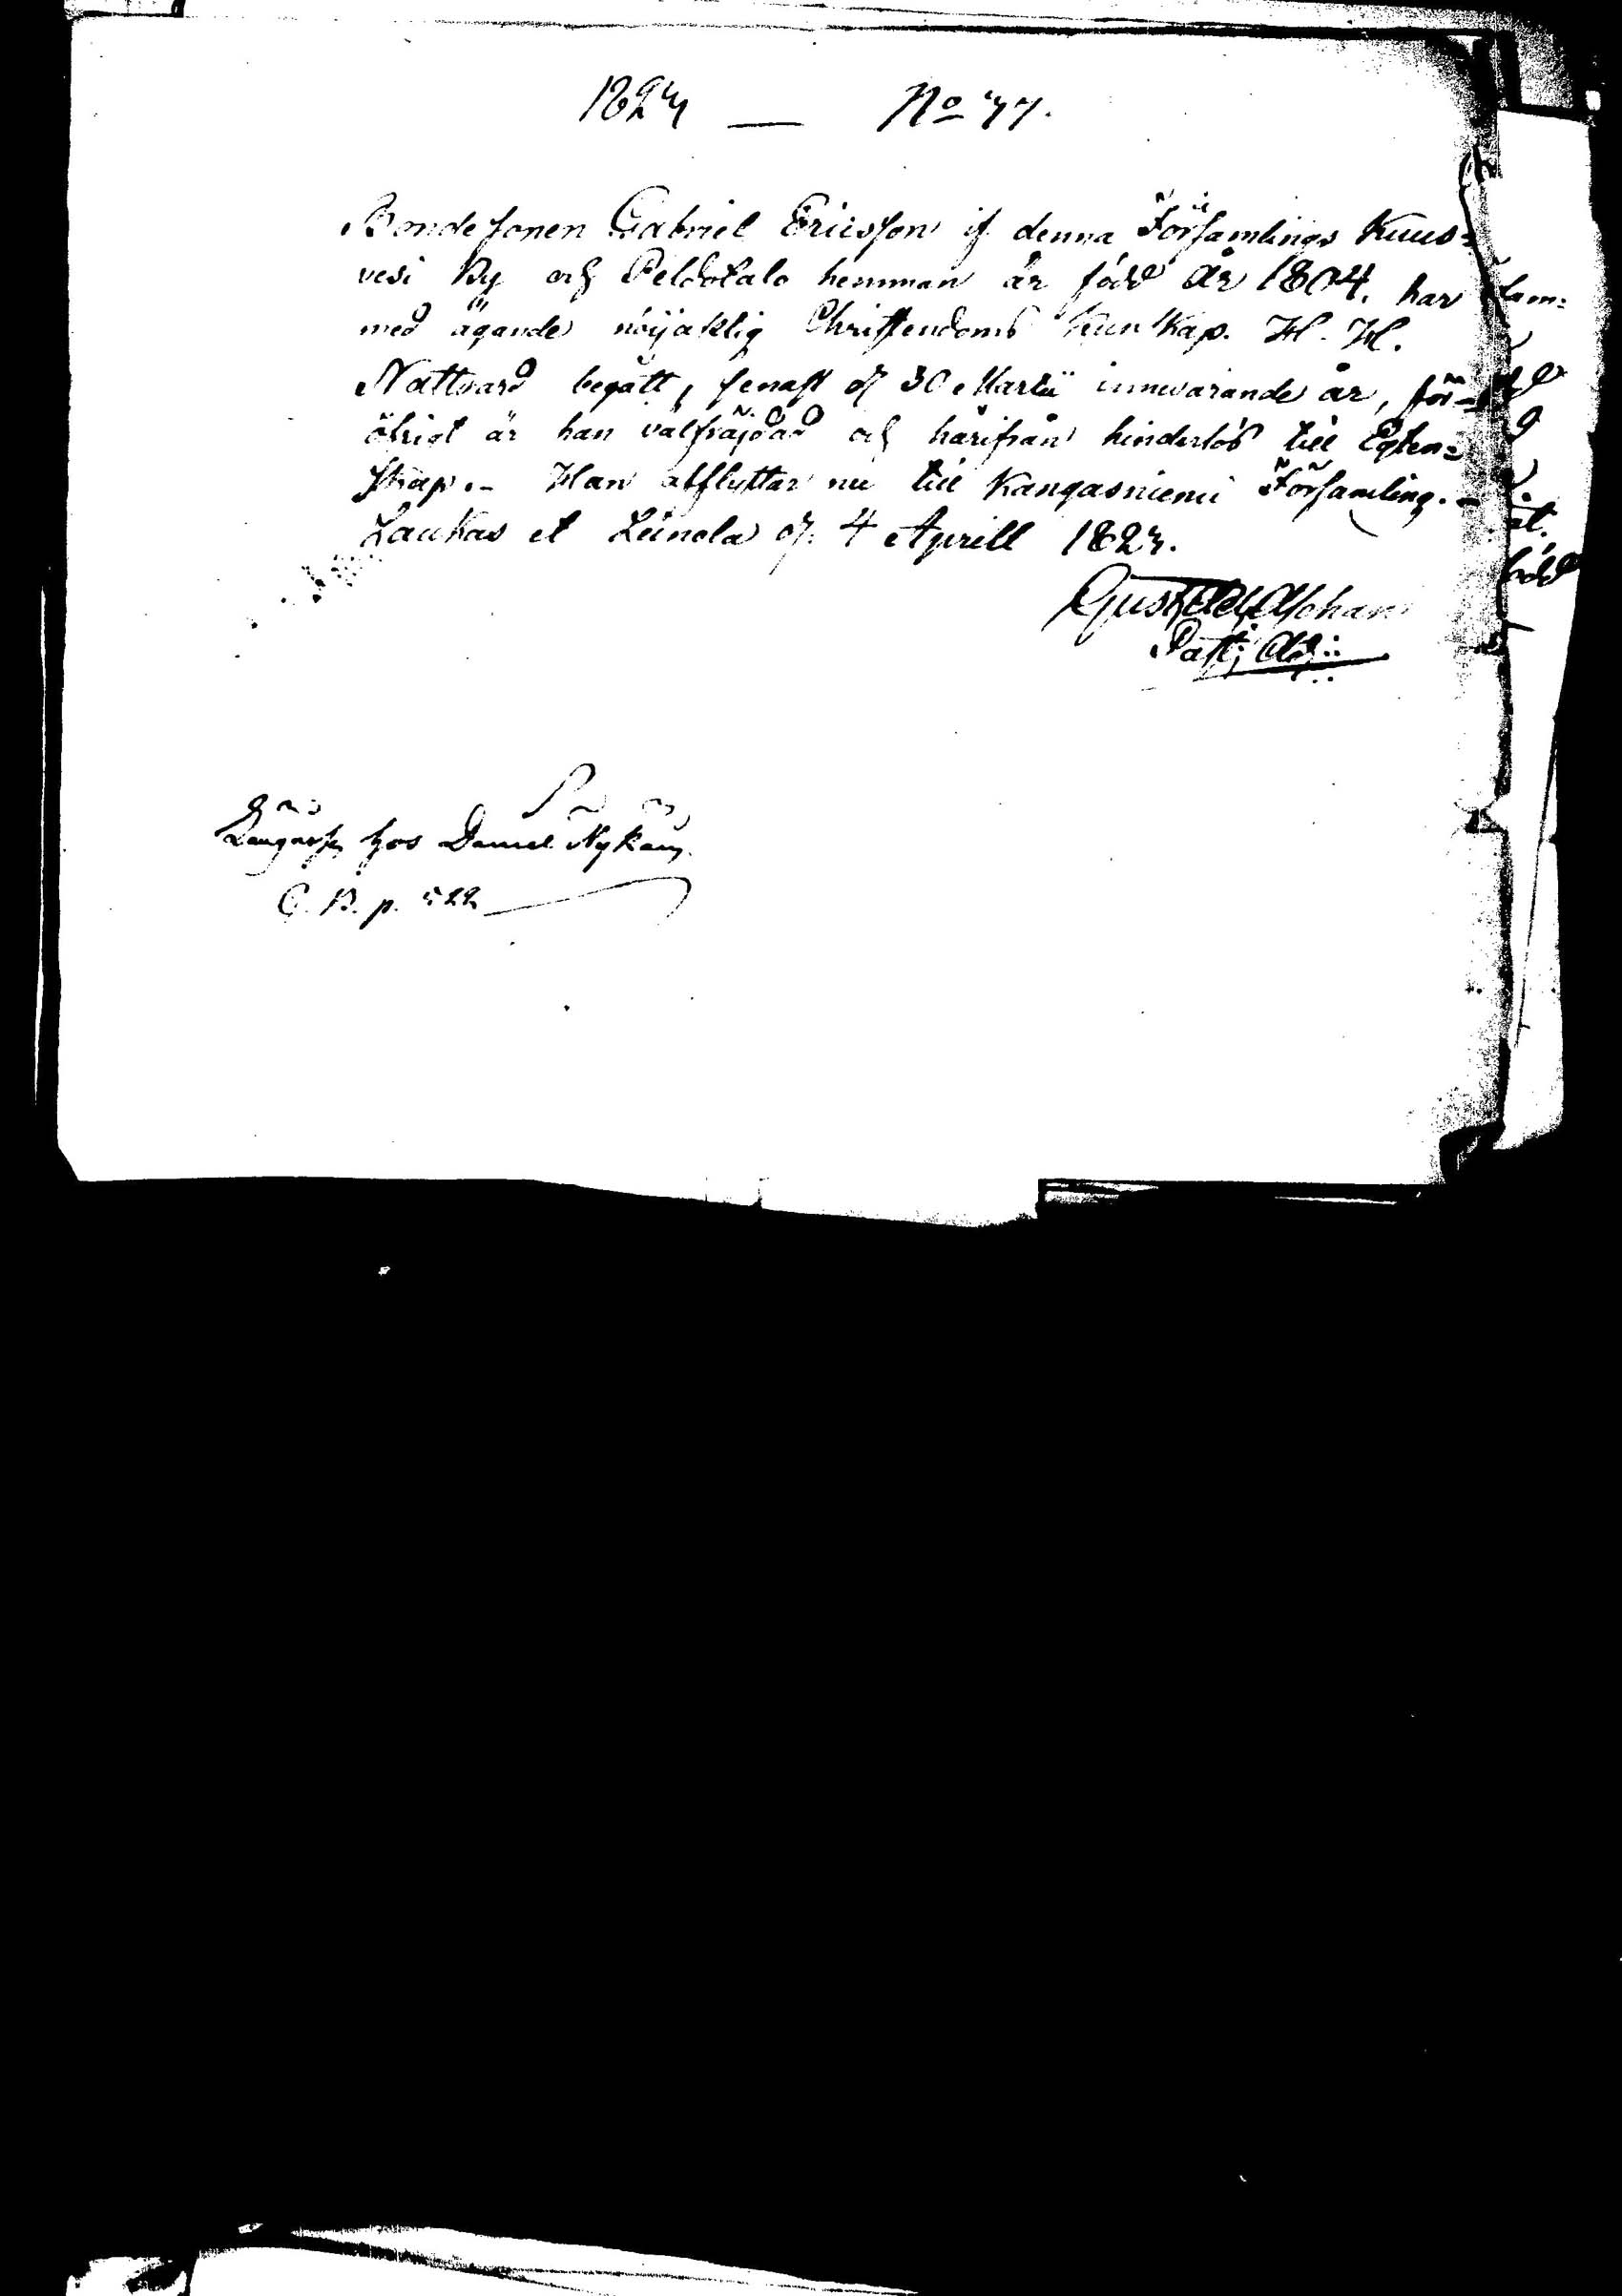 1823 — No 77.
Bondesonen Gabriel Ericsson if denna Församlings Kuus=
vesi By och Peldotalo hemman är född År 1804. har
med ägande nöijaktig Christendoms Kunskap. H. H.
Nattvard begått, senast d. 30 Martii innevarande år, för
öfrigt är han välfräjdad och härifrån hinderlös till Egten=
skap. – Han afflyttar nu till Kangasniemi Församling. –
Laukas et Leinola d. 4 Aprill 1823.
Gust. Adolf Aschan
Past: Adj:
hos Daniel Nykän
C. B. p. 522